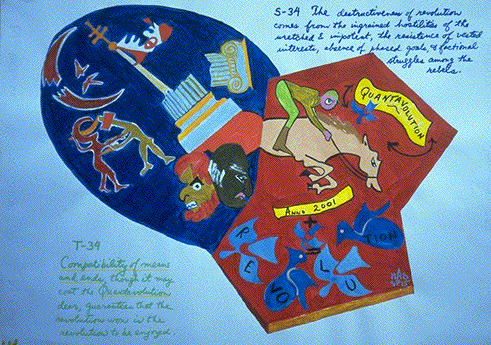 S-34 The destructiveness of revolution
comes from the ingrained hostilities of the
wretched & impotent, the resistance of vested
interests, absence of phased goals, & factional
struggles among the
rebels.
QUANTAVOLUTION
ANNO 2001
+
=
R E VO L U TION
T-34
Compatibility of means
and ends, though it may
cost the Quantavolution
dear, guarantees that the
revolution won is the
revolution to be enjoyed.